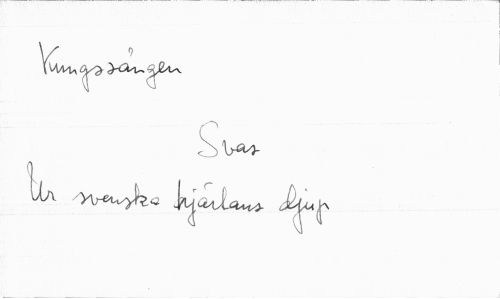 Kungssången
Svas
Ur svenska hjärtans djup